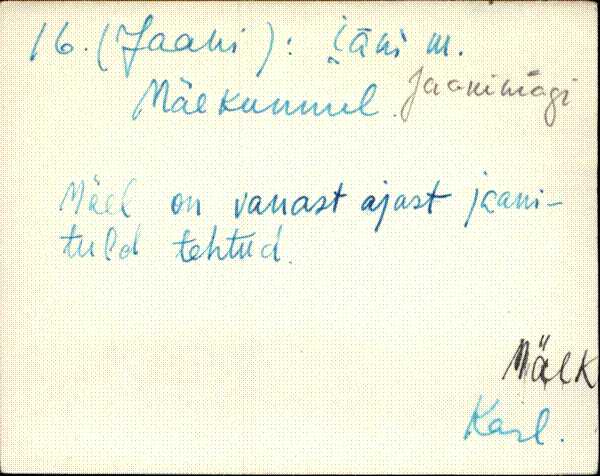 16. (Jaani): i̯āni m.
Mäekunnul. Jaanimägi
Mäel on vanast ajast jaani-
tuld tehtud.
Mälk
Karl.